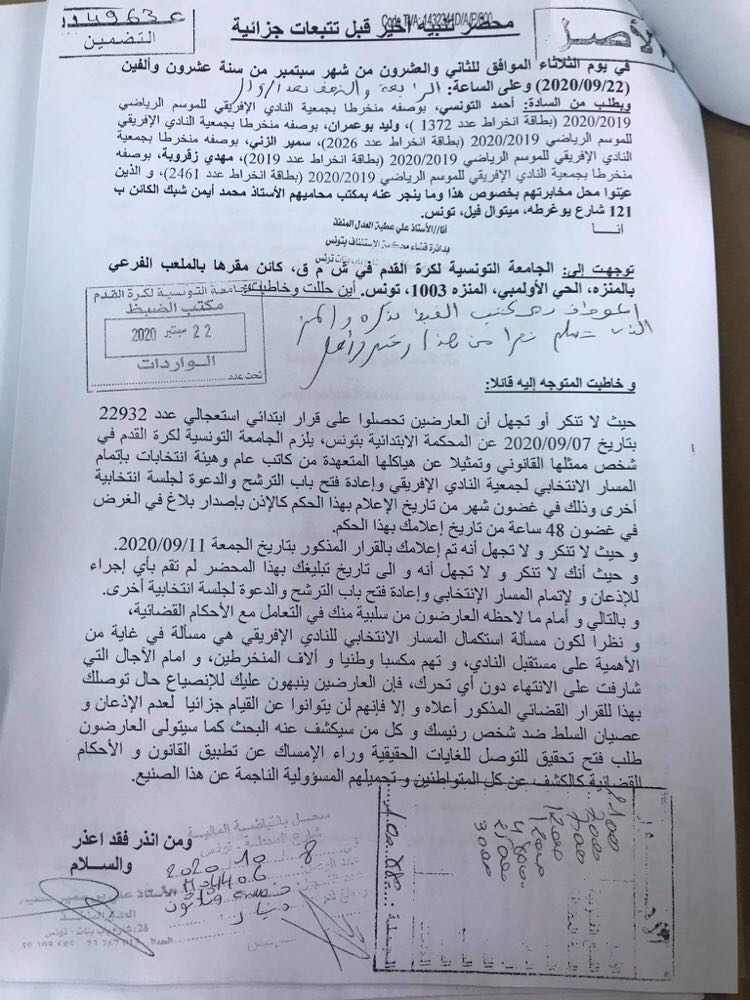 49634
التضمين
Code TVA: 1432341D/A/P/000
الأصل
محضر تنبيه أخير قبل تتبعات جزائية
في يوم الثلاثاء الموافق للثاني والعشرون من شهر سبتمبر من سنة عشرون وألفين
(2020/09/22) وعلى الساعة: الرابعة والنصف بعد الزوال
وبطلب من السادة: أحمد التونسي، بوصفه منخرطا بجمعية النادي الإفريقي للموسم الرياضي
2020/2019 (بطاقة انخراط عدد 1372 )، وليد بوعمران، بوصفه منخرطا بجمعية النادي الإفريقي
للموسم الرياضي 2020/2019 (بطاقة انخراط عدد 2026)، سمير الزني، بوصفه منخرطا بجمعية
النادي الإفريقي للموسم الرياضي 2020/2019 (بطاقة انخراط عدد 2019)، مهدي زقروبة، بوصفه
منخرطا بجمعية النادي الإفريقي للموسم الرياضي 2020/2019 (بطاقة انخراط عدد 2461)، و الذين
عيّنوا محل مخابرتهم بخصوص هذا وما ينجر عنه بمكتب محاميهم الأستاذ محمد أيمن شبك الكائن ب
121 شارع يوغرطه، ميتوال فيل، تونس.
انا
أنا//الأستاذ علي عطية العدل المنفذ
بدائرة قضاء محكمة الإستئناف بتونس
باب بنات تونس
توجهت إلى: الجامعة التونسية لكرة القدم في ش م ق، كائن مقرها بالملعب الفرعي
بالمنزه، الحي الأولمبي، المنزه 1003، تونس. أين حللت وخاطبت:
الجامعة التونسية لكرة القدم
مكتب الضبط
22 سبتمبر 2020
الواردات
تحت عدد
و خاطبت المتوجه إليه قائلا:
حيث لا تنكر أو تجهل أن العارضين تحصلوا على قرار ابتدائي استعجالي عدد 22932
بتاريخ 2020/09/07 عن المحكمة الابتدائية بتونس، يلزم الجامعة التونسية لكرة القدم في
شخص ممثلها القانوني وتمثيلا عن هياكلها المتعهدة من كاتب عام وهيئة انتخابات بإتمام
المسار الانتخابي لجمعية النادي الإفريقي وإعادة فتح باب الترشح والدعوة لجلسة انتخابية
أخرى وذلك في غضون شهر من تاريخ الإعلام بهذا الحكم كالإذن بإصدار بلاغ في الغرض
في غضون 48 ساعة من تاريخ إعلامك بهذا الحكم.
و حيث لا تنكر و لا تجهل أنه تم إعلامك بالقرار المذكور بتاريخ الجمعة 2020/09/11.
و حيث أنك لا تنكر و لا تجهل أنه و الى تاريخ تبليغك بهذا المحضر لم تقم بأي إجراء
للإذعان و لإتمام المسار الإنتخابي وإعادة فتح باب الترشح والدعوة لجلسة انتخابية أخرى.
و بالتالي و أمام ما لاحظه العارضون من سلبية منك في التعامل مع الأحكام القضائية،
و نظرا لكون مسألة استكمال المسار الانتخابي للنادي الإفريقي هي مسألة في غاية من
الأهمية على مستقبل النادي، و تهم مكسبا وطنيا و آلاف المنخرطين، و امام الآجال التي
شارفت على الانتهاء دون أي تحرك، فإن العارضين ينبهون عليك للإنصياع حال توصلك
بهذا للقرار القضائي المذكور أعلاه و إلا فإنهم لن يتوانوا عن القيام جزائيا لعدم الإذعان و
عصيان السلط ضد شخص رئيسك و كل من سيكشف عنه البحث كما سيتولى العارضون
طلب فتح تحقيق للتوصل للغايات الحقيقية وراء الإمساك عن تطبيق القانون و الأحكام
القضائية كالكشف عن كل المتواطئين و تحميلهم المسؤولية الناجمة عن هذا الصنيع.
ومن انذر فقد اعذر
والسلام
سجل بالقباضة المالية
8 10 2020
M044406
العدل المنفذ
28، شارع باب بنات - تونس